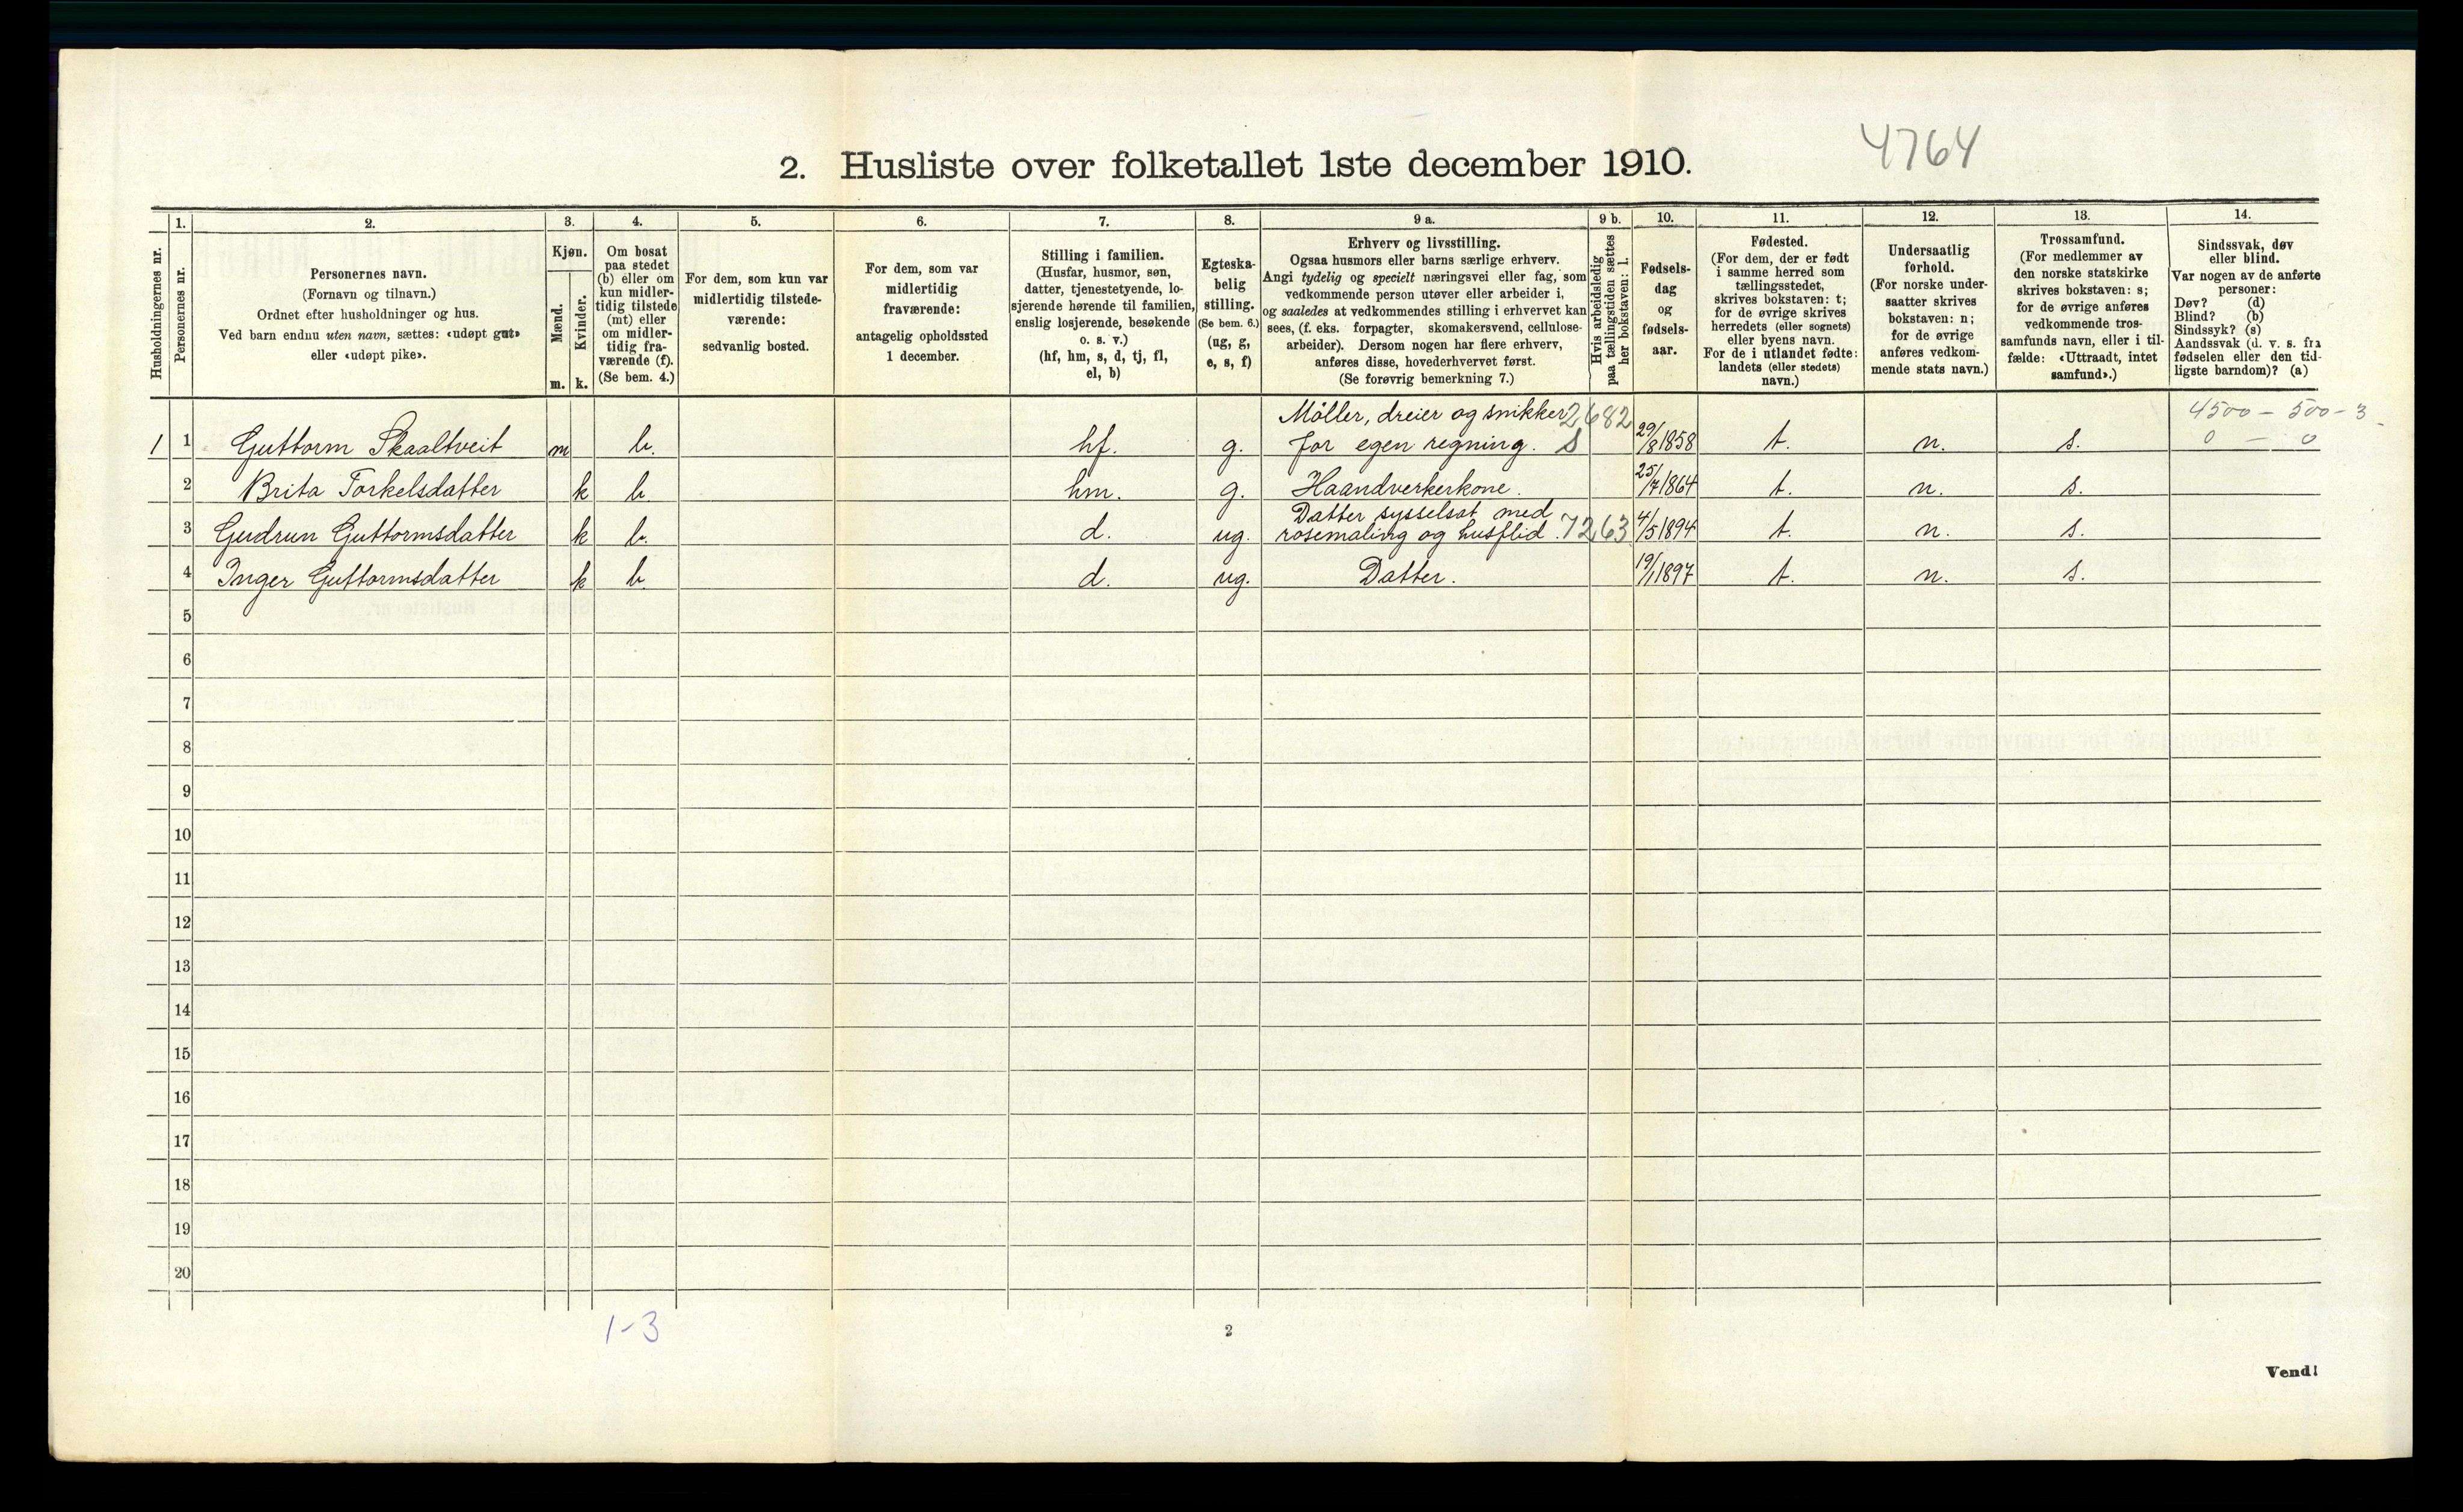 4764
2. Husliste over folketallet 1ste december 1910.
Husholdningernes nr.
1.
Personernes nr.
2.
Personernes navn.
(Fornavn og tilnavn.)
Ordnet efter husholdninger og hus.
Ved barn endnu uten navn, sættes: «udøpt gut»
eller «udøpt pike».
3.
Kjøn.
Mænd.
Kvinder.
m. k.
4.
Om bosat
paa stedet
(b) eller om
kun midler-
tidig tilstede
(mt) eller
om midler-
tidig fra-
værende (f).
(Se bem. 4.)
5.
For dem, som kun var
midlertidig tilstede-
værende:
sedvanlig bosted.
6.
For dem, som var
midlertidig
fraværende:
antagelig opholdssted
1 december.
7.
Stilling i familien.
(Husfar, husmor, søn,
datter, tjenestetyende, lo-
sjerende hørende til familien,
enslig losjerende, besøkende
o. s. v.)
(hf, hm, s, d, tj, fl,
el, b)
8.
Egteska-
belig
stilling.
(Se bem. 6.)
(ug, g,
e, s, f)
9 a.
Erhverv og livsstilling.
Ogsaa husmors eller barns særlige erhverv.
Angi tydelig og specielt næringsvei eller fag, som
vedkommende person utøver eller arbeider i,
og saaledes at vedkommendes stilling i erhvervet kan
sees, (f. eks. forpagter, skomakersvend, cellulose-
arbeider). Dersom nogen har flere erhverv,
anføres disse, hovederhvervet først.
(Se forøvrig bemerkning 7.)
9 b.
Hvis arbeidsledig
paa tællingstiden sættes
her bokstaven: l.
10.
Fødsels-
dag
og
fødsels-
aar.
11.
Fødested.
(For dem, der er født
i samme herred som
tællingsstedet,
skrives bokstaven: t;
for de øvrige skrives
herredets (eller sognets)
eller byens navn.
For de i utlandet fødte:
landets (eller stedets)
navn.)
12.
Undersaatlig
forhold.
(For norske under-
saatter skrives
bokstaven: n;
for de øvrige
anføres vedkom-
mende stats navn.)
13.
Trossamfund.
(For medlemmer av
den norske statskirke
skrives bokstaven: s;
for de øvrige anføres
vedkommende tros-
samfunds navn, eller i til-
fælde: «Uttraadt, intet
samfund».)
14.
Sindssvak, døv
eller blind.
Var nogen av de anførte
personer:
Døv? (d)
Blind? (b)
Sindssyk? (s)
Aandssvak (d. v. s. fra
fødselen eller den tid-
ligste barndom)? (a)
Møller, dreier og snikker 2682 4500 - 500 - 3
1 1 Guttorm Skaaltveit m b. hf. g. for egen regning. S 29/8 1858 t. n. s. 0 - 0
2 Brita Torkelsdatter k b hm. g. Haandverkerkone. 25/7 1864 t. n. s.
Datter sysselsat med
3 Gudrun Guttormsdatter k b. d. ug. rosemaling og husflid. 7263 4/5 1894 t. n. s.
4 Inger Guttormsdatter k b d. ug. Datter. 19/1 1897 t. n. s.
5
6
7
8
9
10
11
12
13
14
15
16
17
18
19
20
1-3
2
Vend!